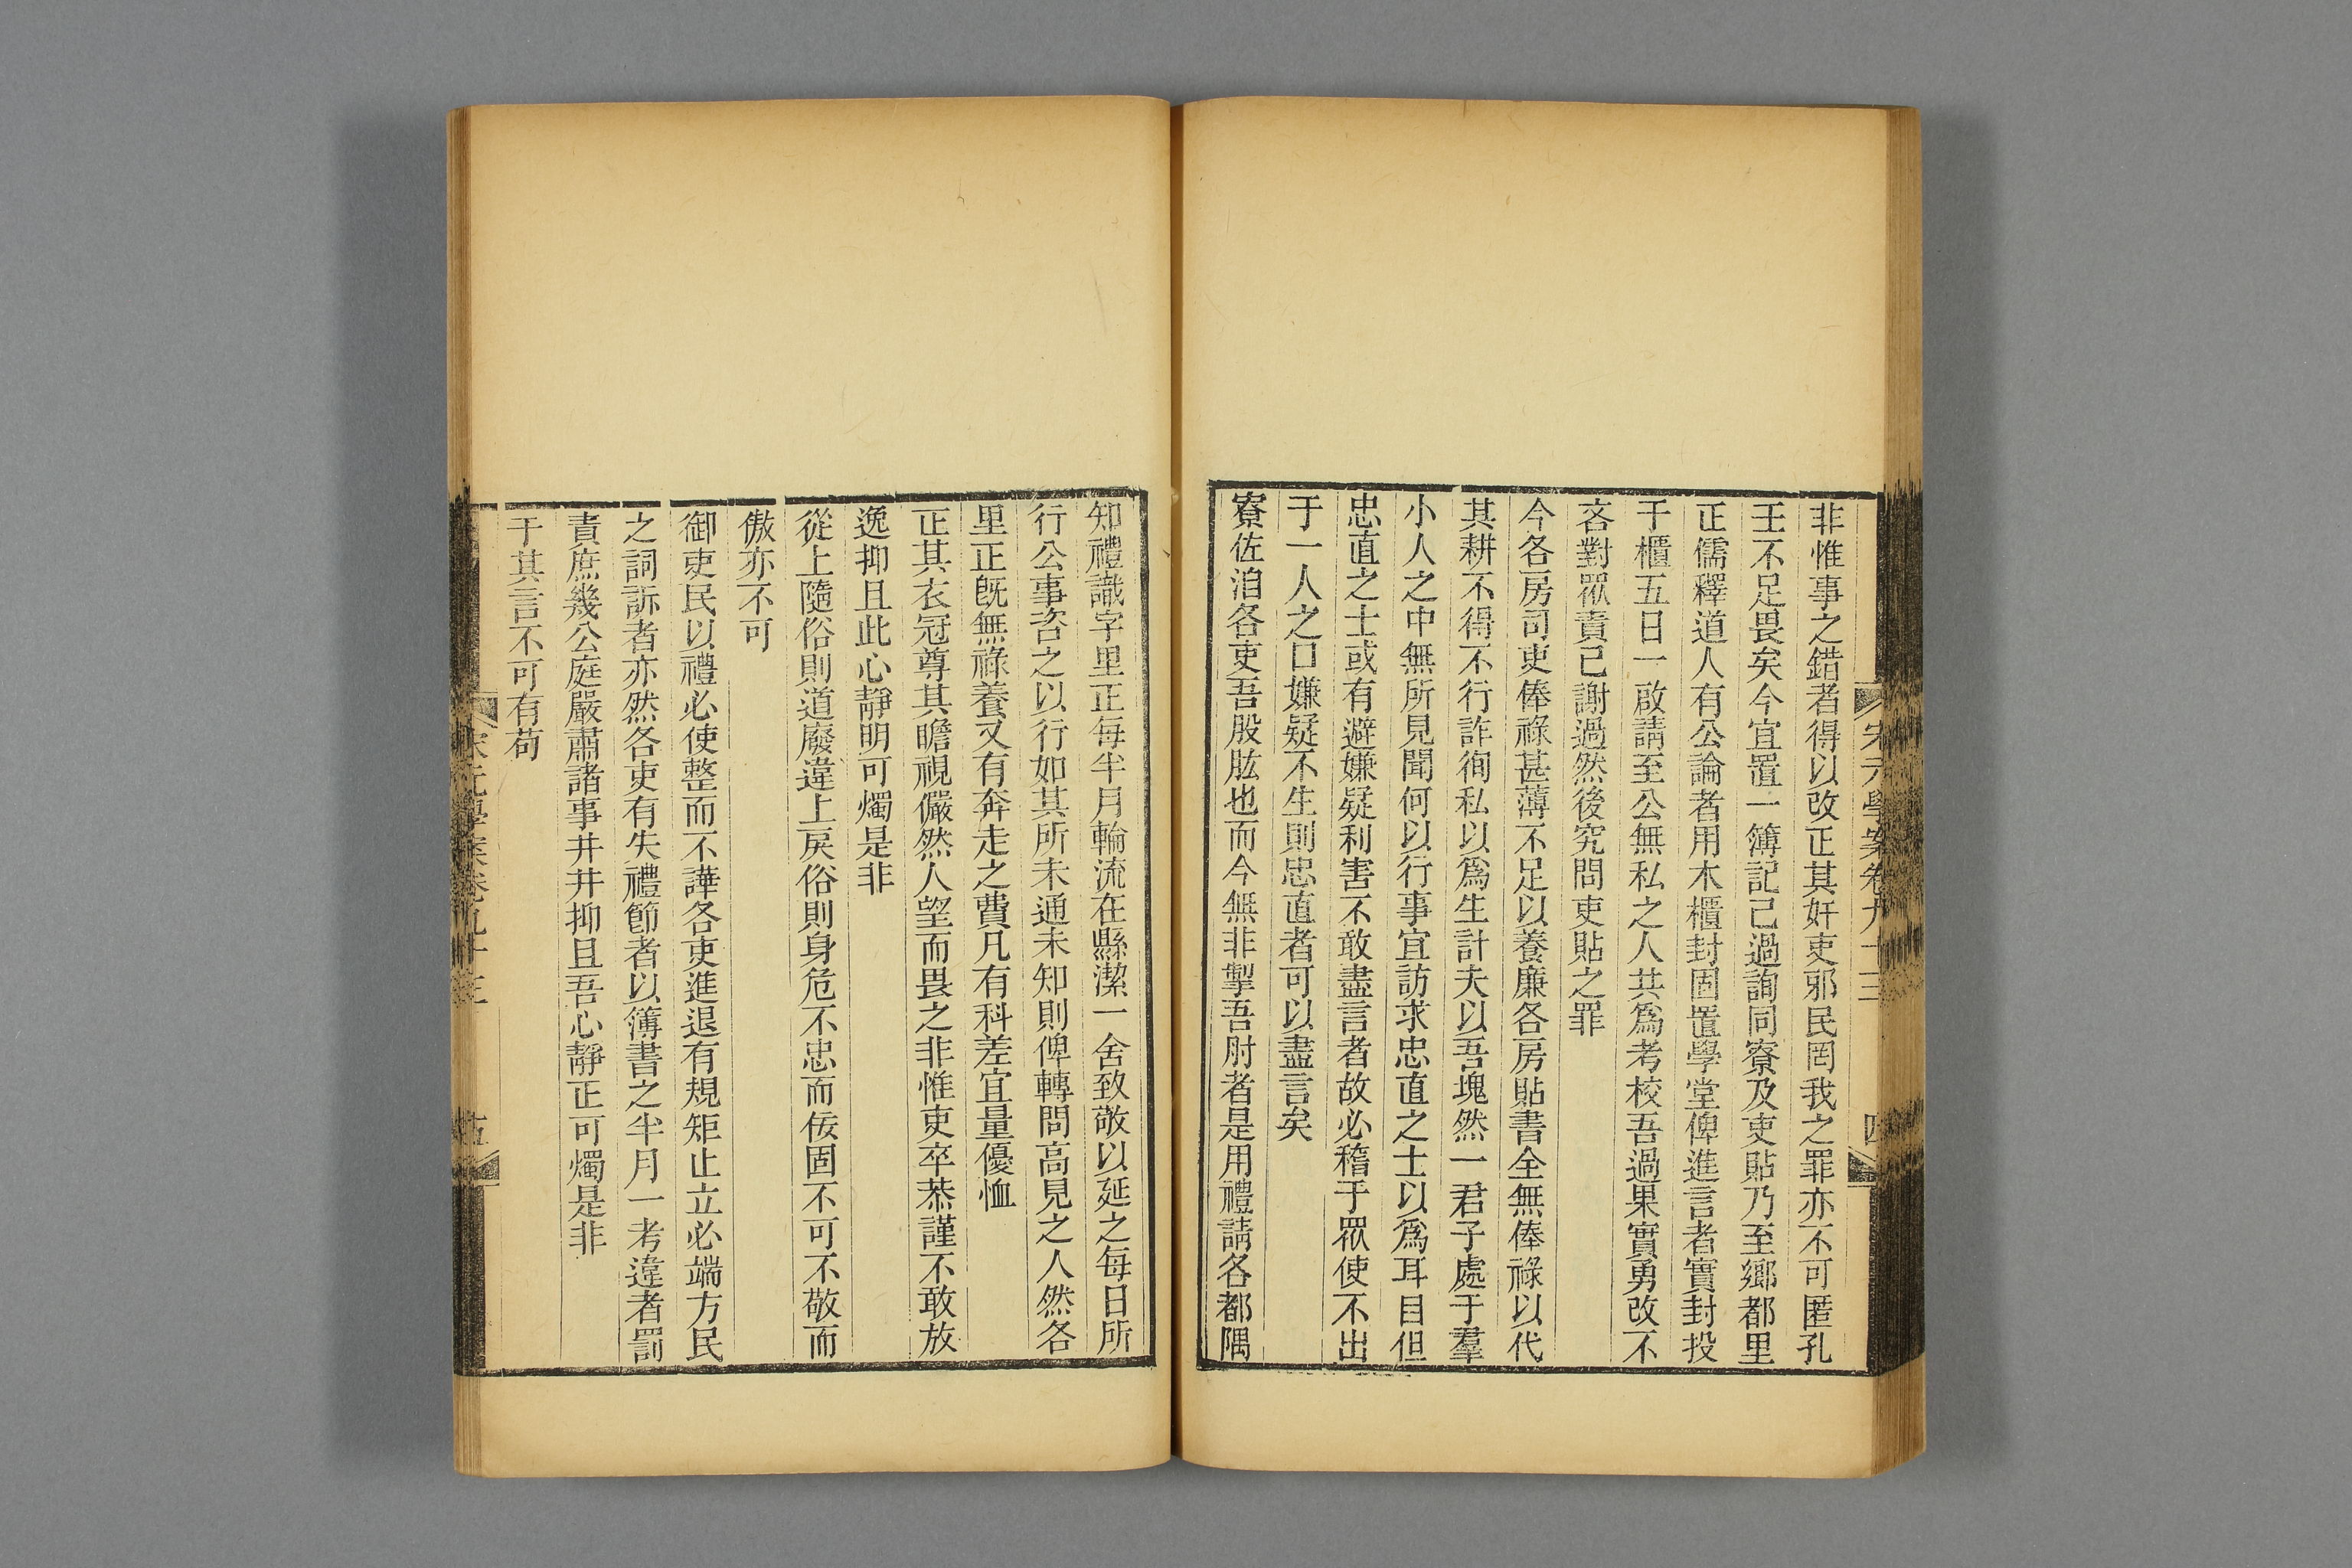 宋元學案卷九十三
四
非惟事之錯者得以改正其奸吏邪民罔我之罪亦不可匿孔
王不足畏矣今宜置一簿記己過詢同寮及吏貼乃至鄉都里
正儒釋道人有公論者用木櫃封固置學堂俾進言者實封投
于櫃五日一啟請至公無私之人共爲考校吾過果實勇改不
吝對眾責己謝過然後究問吏貼之罪
今各房司吏俸祿甚薄不足以養廉各房貼書全無俸祿以代
其耕不得不行詐徇私以爲生計夫以吾塊然一君子處于羣
小人之中無所見聞何以行事宜訪求忠直之士以爲耳目但
忠直之士或有避嫌疑利害不敢盡言者故必稽于眾使不出
于一人之口嫌疑不生則忠直者可以盡言矣
寮佐洎各吏吾股肱也而今無非掣吾肘者是用禮請各都隅
知禮識字里正每半月輪流在縣潔一舍致敬以延之每日所
行公事咨之以行如其所未通未知則俾轉問高見之人然各
里正既無祿養又有奔走之費凡有科差宜量優恤
正其衣冠尊其瞻視儼然人望而畏之非惟吏卒恭謹不敢放
逸抑且此心靜明可燭是非
從上隨俗則道廢違上戾俗則身危不忠而佞固不可不敬而
傲亦不可
御吏民以禮必使整而不譁各吏進退有規矩止立必端方民
之詞訴者亦然各吏有失禮節者以簿書之半月一考違者罰
責庶幾公庭嚴肅諸事井井抑且吾心靜正可燭是非
于其言不可有苟
宋元學案卷九十三
五